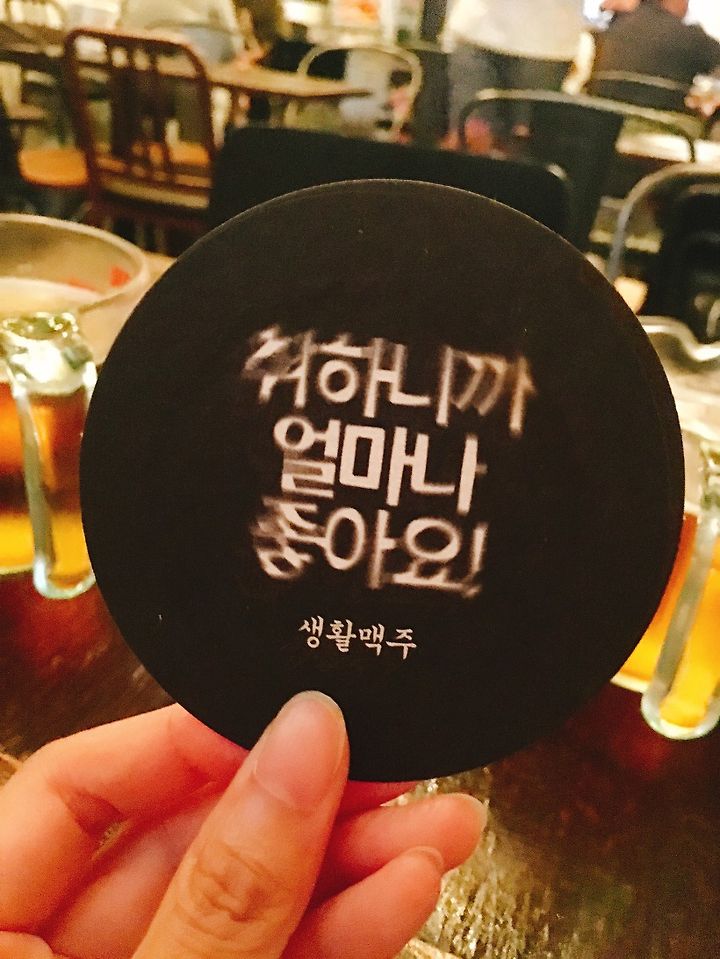 취하니까
얼마나
좋아요!
생활맥주